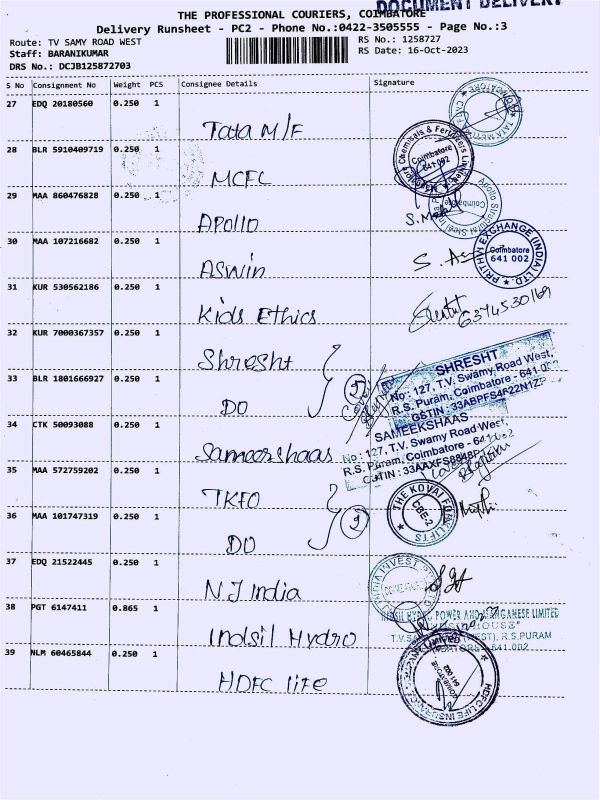 DOCUMENT DELIVERY
THE PROFESSIONAL COURIERS, COIMBATORE
Delivery Runsheet - PC2 - Phone No.:0422-3505555 - Page No.:3
Route: TV SAMY ROAD WEST
RS No.: 1258727
Staff: BARANIKUMAR
RS Date: 16-Oct-2023
DRS No.: DCJB125872703
S No Consignment No Weight PCS Consignee Details Signature
27 EDQ 20180560 0.250 1
Tata M/F
28 BLR 5910409719 0.250 1
Coimbatore
641 002
MCFL
29 MAA 860476828 0.250 1
APOllO
30 MAA 107216682 0.250 1
PRITHVI EXCHANGE (INDIA) LTD.
Coimbatore
641 002
ASwin
31 KUR 530562186 0.250 1
6374530169
Kids Ethics
32 KUR 7000367357 0.250 1
Shresht
SHRESHT
No : 127, T.V. Swamy Road West,
R.S. Puram, Coimbatore - 641 002
GSTIN : 33ABPFS4822N1ZP
33 BLR 1801666927 0.250 1
2
DO
34 CTK 50093088 0.250 1
SAMEEKSHAAS
No : 127, T.V. Swamy Road West,
R.S. Puram, Coimbatore - 641 002
Sameekshaas
35 MAA 572759202 0.250 1
TKFO
THE KOVAI FORK LIFTS
CBE-2
36 MAA 101747319 0.250 1
2
DO
37 EDQ 21522445 0.250 1
NJ India
38 PGT 6147411 0.865 1
INDSIL HYDRO POWER AND MANGANESE LIMITED
Indsil Hydro
39 NLM 60465844 0.250 1
HDFC LIFE INSURANCE
HDFC life